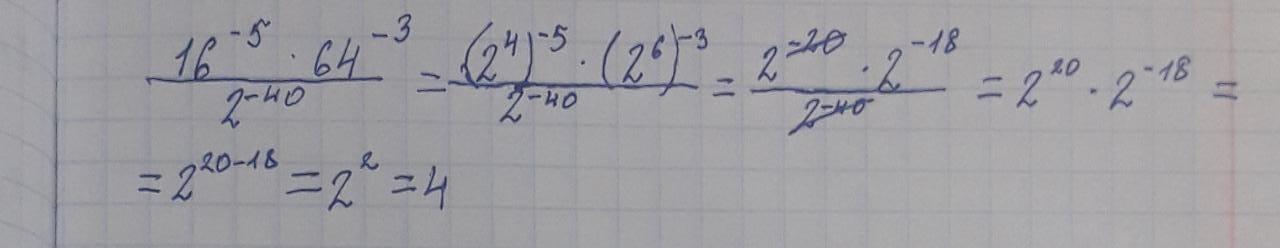 \frac{16^{-5} \cdot 64^{-3}}{2^{-40}} = \frac{(2^4)^{-5} \cdot (2^6)^{-3}}{2^{-40}} = \frac{2^{-20} \cdot 2^{-18}}{2^{-40}} = 2^{20} \cdot 2^{-18} =
= 2^{20-18} = 2^2 = 4